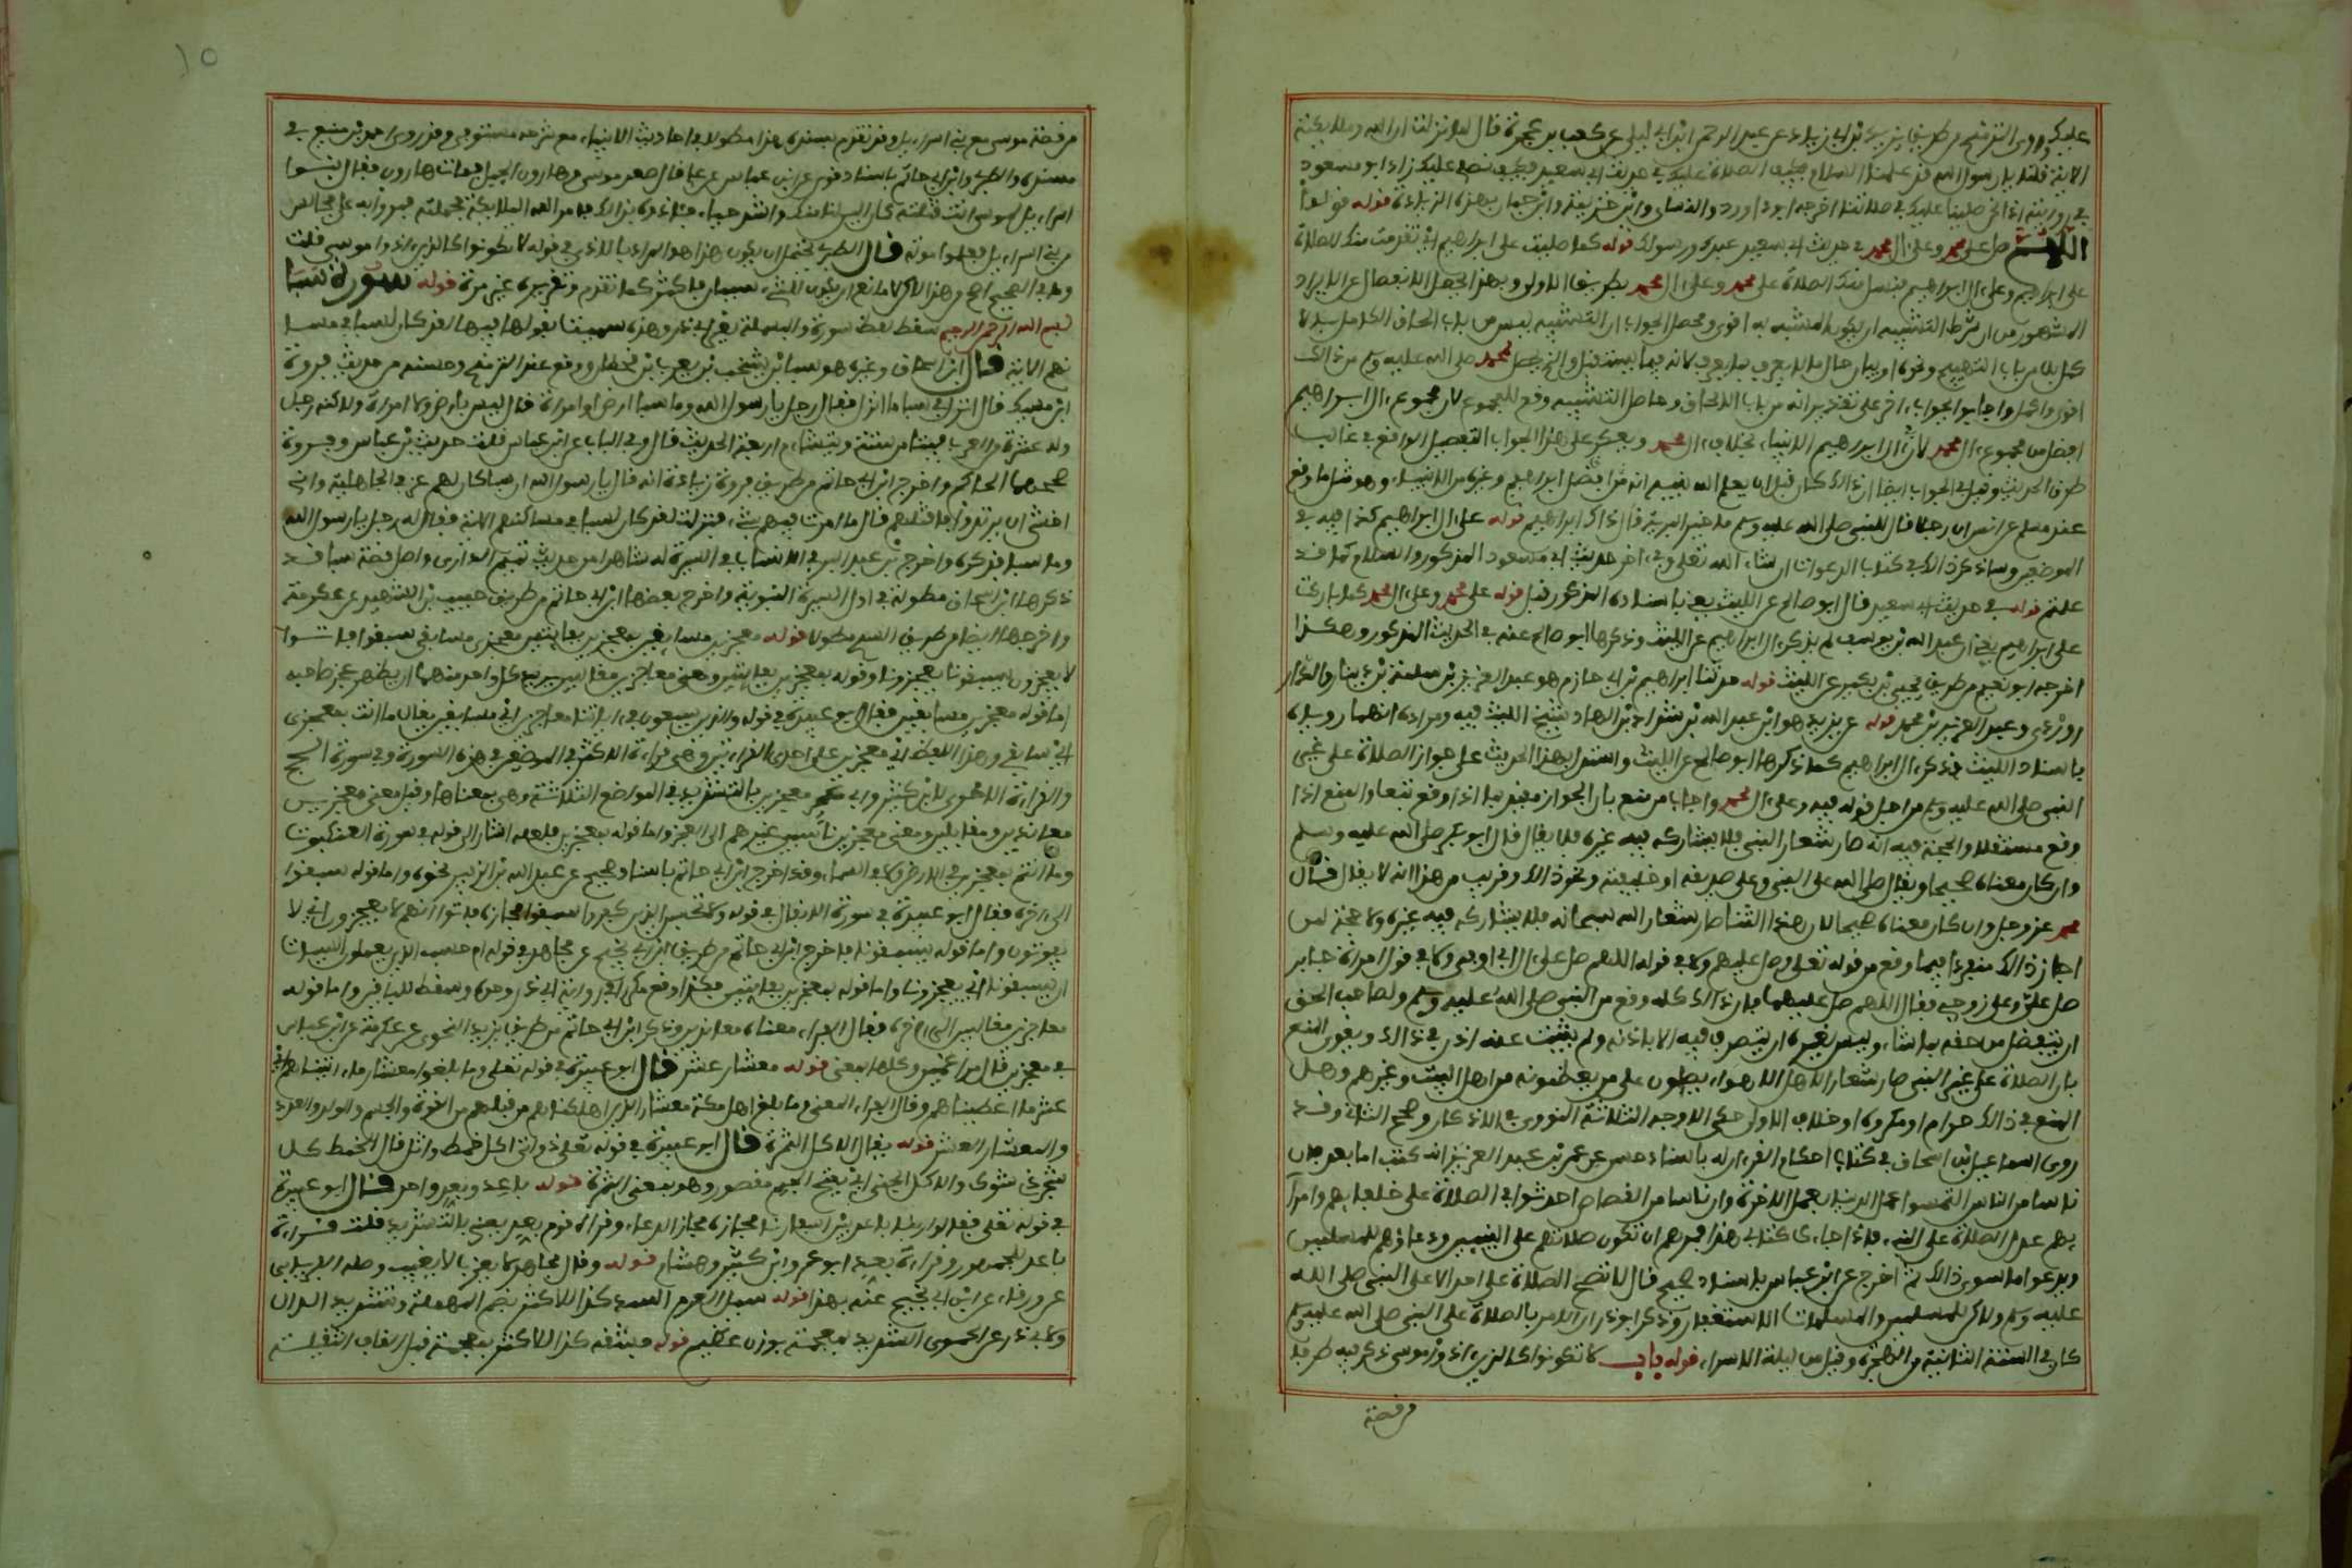 عليك وروى الترمذي من طريق يزيد بن أبي زياد عن عبد الرحمن ابن أبي ليلى عن كعب بن عجرة قال لما نزلت ان الله وملايكته
الاية قلنا يا رسول الله قد علمنا السلام فكيف الصلاة عليك في حديث ابي سعيد فكيف نصلي عليك زاد ابو مسعود
في روايته اذا نحن صلينا عليك في صلاتنا اخرجه ابو داوود والنساي وابن خزيمة وابن حبان بهذه الزيادة قوله قولوا
اللهم صل على محمد وعلى ءال محمد في حديث ابي سعيد عبدك ورسولك قوله كما صليت على ابراهيم اي تقدمت منك الصلاة
على ابراهيم وعلى ءال ابراهيم فنسل منك الصلاة على محمد وعلى ءال محمد بطريق الاولى وبهذا يحصل الانفصال عن الايراد
المشهور من ان شرط التشبيه ان يكون المشبه به اقوى ومحصل الجواب ان التشبيه ليس من باب الحاق الكامل بالاكمل
بل من باب التهييج ونحوه او بيان حال ما لا يعرف بما يعرف لانه فيما يستقبل والذي يحصل لمحمد صلى الله عليه وسلم من ذالك
اقوى واكمل واجابوا بجواب ءاخر على تقدير انه من باب الالحاق وحاصل التشبيه وقع للمجموع لان مجموع ءال ابراهيم
افضل من مجموع ءال محمد لان في ءال ابراهيم الانبياء بخلاف ءال محمد ويعكر على هذا الجواب التفصيل الواقع في غالب
طرق الحديث وقيل في الجواب ايضا ان ذالك كان قبل ان يعلم الله نبيه انه افضل من ابراهيم وغيره من الانبياء وهو مثل ما وقع
عند مسلم عن انس ان رجلا قال للنبي صلى الله عليه وسلم يا خير البرية قال ذاك ابراهيم قوله على ءال ابراهيم كذا فيه في
الموضعين وساذكر ذالك في كتاب الدعوات ان شاء الله تعلى وفي ءاخر حديث ابي مسعود المذكور والسلام كما قد
علمتم قوله في حديث ابي سعيد قال ابو صالح عن الليث يعني باسناده المذكور قبل قوله على محمد وعلى ءال محمد كما باركت
على ابراهيم يعني ان عبد الله بن يوسف لم يذكر ءال ابراهيم عن الليث وذكرها ابو صالح عنه في الحديث المذكور وهكذا
اخرجه ابو نعيم من طريق يحيى بن بكير عن الليث قوله حدثنا ابراهيم بن حمزة ابن ابي حازم هو عبد العزيز بن سلمة بن دينار والدرا
وردي وعبد العزيز بن محمد قوله عن يزيد هو ابن عبد الله بن شداد بن الهاد شيخ الليث فيه ومراده انهما روياه
باسناد الليث فذكر ءال ابراهيم كما ذكرها ابو صالح عن الليث واستدل بهذا الحديث على جواز الصلاة على غير
النبي صلى الله عليه وسلم من اجل قوله فيه وعلى ءال محمد واجاب من منع بان الجواز مقيد بما اذا وقع تبعا والمنع اذا
وقع مستقلا والحجة فيه انه صار شعار النبي فلا يشاركه فيه غيره فلا يقال قال ابو بكر صلى الله عليه وسلم
وان كان معناه صحيحا ويقال صلى الله على النبي وعلى صديقه او خليفته ونحو ذالك وقريب من هذا انه لا يقال قال
محمد عز وجل وان كان معناه صحيحا لان هذا الثناء صار شعار الله سبحانه فلا يشاركه فيه غيره ولا حجة لمن
اجاز ذالك منفردا فيما وقع من قوله تعلى وصل عليهم ولا في قوله اللهم صل على ءال ابي اوفى ولا في قول امراة جابر
صل علي وعلى زوجي فقال اللهم صل عليهما فان ذالك كله وقع من النبي صلى الله عليه وسلم ولصاحب الحق
ان يتفضل من حقه بما شاء وليس لغيره ان يتصرف فيه الا باذنه ولم يثبت عنه اذن في ذالك ويقوي المنع
بان الصلاة على غير النبي صار شعارا لاهل الاهواء يصلون على من يعظمونه من اهل البيت وغيرهم وهل
المنع في ذالك حرام او مكروه او خلاف الاولى حكى الاوجه الثلاثة النووي في الاذكار وصحح الثاني وقد
روى اسماعيل بن اسحاق في كتاب احكام القرءان له باسناد حسن عن عمر بن عبد العزيز انه كتب اما بعد فان
ناسا من الناس التمسوا عمل الدنيا بعمل الاخرة وان ناسا من القصاص احدثوا في الصلاة على خلفايهم وامرا
يهم عدل الصلاة على النبي فاذا جاءك كتابي هذا فمرهم ان تكون صلاتهم على النبيين ودعاؤهم للمسلمين
ويدعوا ما سوى ذالك ثم اخرج عن ابن عباس باسناد صحيح قال لا تصح الصلاة على احد الا على النبي صلى الله
عليه وسلم ولاكن للمسلمين والمسلمات الاستغفار وذكر ابو ذر ان الامر بالصلاة على النبي صلى الله عليه وسلم
كان في السنة الثانية من الهجرة وقيل من ليلة الاسراء قوله باب لا تكونوا كالذين ءاذوا موسى ذكر فيه طرفا
من قصة
من قصة موسى مع بني اسراءيل وقد تقدم بسنده هذا مطولا في احاديث الانبياء مع شرحه مستوفى وقد روى احمد بن منيع في
مسنده والطبري وابن ابي حاتم باسناد قوي عن ابن عباس عن علي قال صعد موسى وهارون الجبل فمات هارون فقال بنوا
اسراءيل لموسى انت قتلته كان الين لنا منك واشد حياء فاذوه بذالك فامر الله الملايكة فحملته فمروا به على مجالس
بني اسراءيل فعلموا بموته قال الطبري يحتمل ان يكون هذا هو المراد بالاذى في قوله لا تكونوا كالذين ءاذوا موسى قلت
وما في الصحيح اصح من هذا لاكن لا مانع ان يكون للشيء سببان فاكثر كما تقدم وتقريره غير مرة قوله سورة سبا
بسم الله الرحمن الرحيم سقط لفظ سورة والبسملة لغير ابي ذر وهذه سميت بقوله فيها لقد كان لسبا في مسا
كنهم الاية قال ابن اسحاق وغيره هو سبا بن يشجب بن يعرب بن قحطان ووقع عند الترمذي وحسنه من حديث فروة
ابن مسيك قال انزل في سبا ما انزل فقال رجل يا رسول الله وما سبا ارض او امراة قال ليس بارض ولا امراة ولاكنه رجل
ولد عشرة من العرب فتيامن ستة وتشاءم اربعة الحديث قال وفي الباب عن ابن عباس قلت حديث بن عباس وفروة
صححهما الحاكم واخرج ابن ابي حاتم من طريق فروة زيادة انه قال يا رسول الله ان سبا كان لهم عز في الجاهلية واني
اخشى ان يرتدوا فاقاتلهم قال ما امرت فيهم بشيء فنزلت لقد كان لسبا في مساكنهم الاية فقال له رجل يا رسول الله
وما سبا فذكره واخرج بن عبد البر في الانساب في السيرة له شاهدا من حديث تميم الداري واصل قصة سبا قد
ذكرها ابن اسحاق مطولة في اول السيرة النبوية واخرج بعضها ابن ابي حاتم من طريق حبيب بن الشهيد عن عكرمة
واخرجها ايضا من طريق السدي مطولا قوله معجزين مسابقين بمعجزين بفايتين معجزي مسابقي سبقوا فاتوا
لا يعجزون يسبقونا يعجزونا وقوله بمعجزين بفايتين ومعنى معاجزين مغالبين يريد كل واحد منهما ان يظهر عجز صاحبه
اما قوله معجزين مسابقين فقال ابو عبيدة في قوله والذين يسعون في ءاياتنا معاجزين اي مسابقين يقال ما انت بمعجزي
اي سابقي وهذا اللفظ اي معجزين على احدى القراءتين وهي قراءة الاكثر في الموضعين في هذه السورة وفي سورة الحج
والقراءة الاخرى لابن كثير وابي عمرو معجزين بالتشديد في المواضع الثلاثة وهي بمعناها وقيل معنى معجزين
معاندين ومغالبين ومعنى معجزين ناسبين غيرهم الى العجز واما قوله بمعجزين فلعله اشار الى قوله في سورة العنكبوت
وما انتم بمعجزين في الارض ولا في السماء وقد اخرج ابن ابي حاتم باسناد صحيح عن عبد الله بن الزبير نحوه واما قوله سبقوا
الى اخره فقال ابو عبيدة في سورة الانفال في قوله ولا تحسبن الذين كفروا سبقوا مجازه فاتوا انهم لا يعجزون اي لا
يفوتون واما قوله يسبقونا فاخرج ابن ابي حاتم من طريق ابن ابي نجيح عن مجاهد في قوله ام حسب الذين يعملون السيئات
ان يسبقونا اي يعجزونا واما قوله بمعجزين بفايتين فكذا وقع مكررا في رواية ابي ذر وحده وسقط للباقين واما قوله
معاجزين مغالبين الى اخره فقال الفراء معناه معاندين وذكر ابن ابي حاتم من طريق يزيد النحوي عن عكرمة عن ابن عباس
في معجزين قال مراغمين وكلها بمعنى قوله معشار عشر قال ابو عبيدة في قوله تعلى وما بلغوا معشار ما ءاتيناهم اي
عشر ما اعطيناهم وقال الفراء المعنى وما بلغ اهل مكة معشار الذين اهلكناهم من قبلهم من القوة والجسم والولد والعدد
والمعشار العشر قوله يقال الاكل الثمرة قال ابو عبيدة في قوله تعلى ذواتي اكل خمط واثل قال الخمط كل
شجر ذي شوك والاكل الجنى اي بفتح الجيم مقصور وهو بمعنى الثمرة قوله باعد وبعد واحد قال ابو عبيدة
في قوله تعلى فقالوا ربنا باعد بين اسفارنا مجازه مجاز الدعاء وقراه قوم بعد يعني بالتشديد قلت قراءة
باعد للجمهور وقراءة بعد ابو عمرو وابن كثير وهشام قوله وقال مجاهد لا يعزب لا يغيب وصله الفريابي
عن ورقاء عن ابن ابي نجيح عنه بهذا قوله سيل العرم السد كذا للاكثر بضم المهملة وتشديد الدال
ولابي ذر عن الحموي الشديد بمعجمة بوزن عظيم قوله فشقه كذا للاكثر بمعجمة قبل القاف الثقيلة
١٥